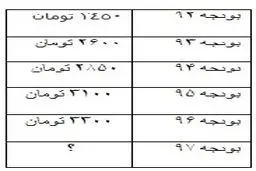 بودجه ۹۲ ۱٤۵۰ تومان
بودجه ۹۳ ۲۶۰۰ تومان
بودجه ۹۴ ۲۸۵۰ تومان
بودجه ۹۵ ۳۱۰۰ تومان
بودجه ۹۶ ۳۳۰۰ تومان
بودجه ۹۷ ؟